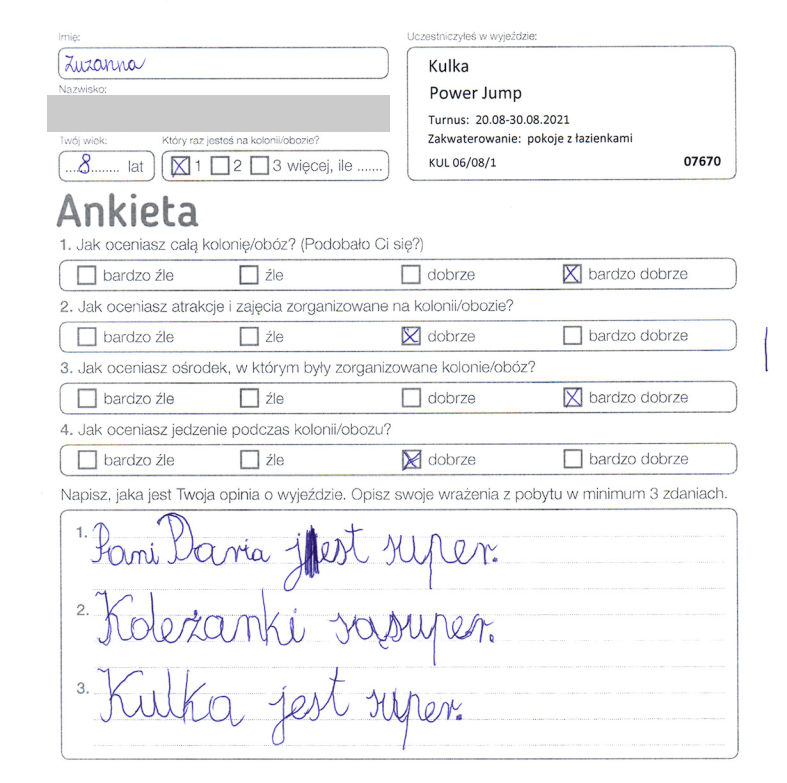 Imię:
Zuzanna
Nazwisko:
Twój wiek:
...8........ lat
Który raz jesteś na kolonii/obozie?
☒ 1 ☐ 2 ☐ 3 więcej, ile .......
Uczestniczyłeś w wyjeździe:
Kulka
Power Jump
Turnus: 20.08-30.08.2021
Zakwaterowanie: pokoje z łazienkami
KUL 06/08/1 07670
Ankieta
1. Jak oceniasz całą kolonię/obóz? (Podobało Ci się?)
☐ bardzo źle ☐ źle ☐ dobrze ☒ bardzo dobrze
2. Jak oceniasz atrakcje i zajęcia zorganizowane na kolonii/obozie?
☐ bardzo źle ☐ źle ☒ dobrze ☐ bardzo dobrze
3. Jak oceniasz ośrodek, w którym były zorganizowane kolonie/obóz?
☐ bardzo źle ☐ źle ☐ dobrze ☒ bardzo dobrze
4. Jak oceniasz jedzenie podczas kolonii/obozu?
☐ bardzo źle ☐ źle ☒ dobrze ☐ bardzo dobrze
Napisz, jaka jest Twoja opinia o wyjeździe. Opisz swoje wrażenia z pobytu w minimum 3 zdaniach.
1. Pani Daria jest super.
2. Koleżanki są super.
3. Kulka jest super.